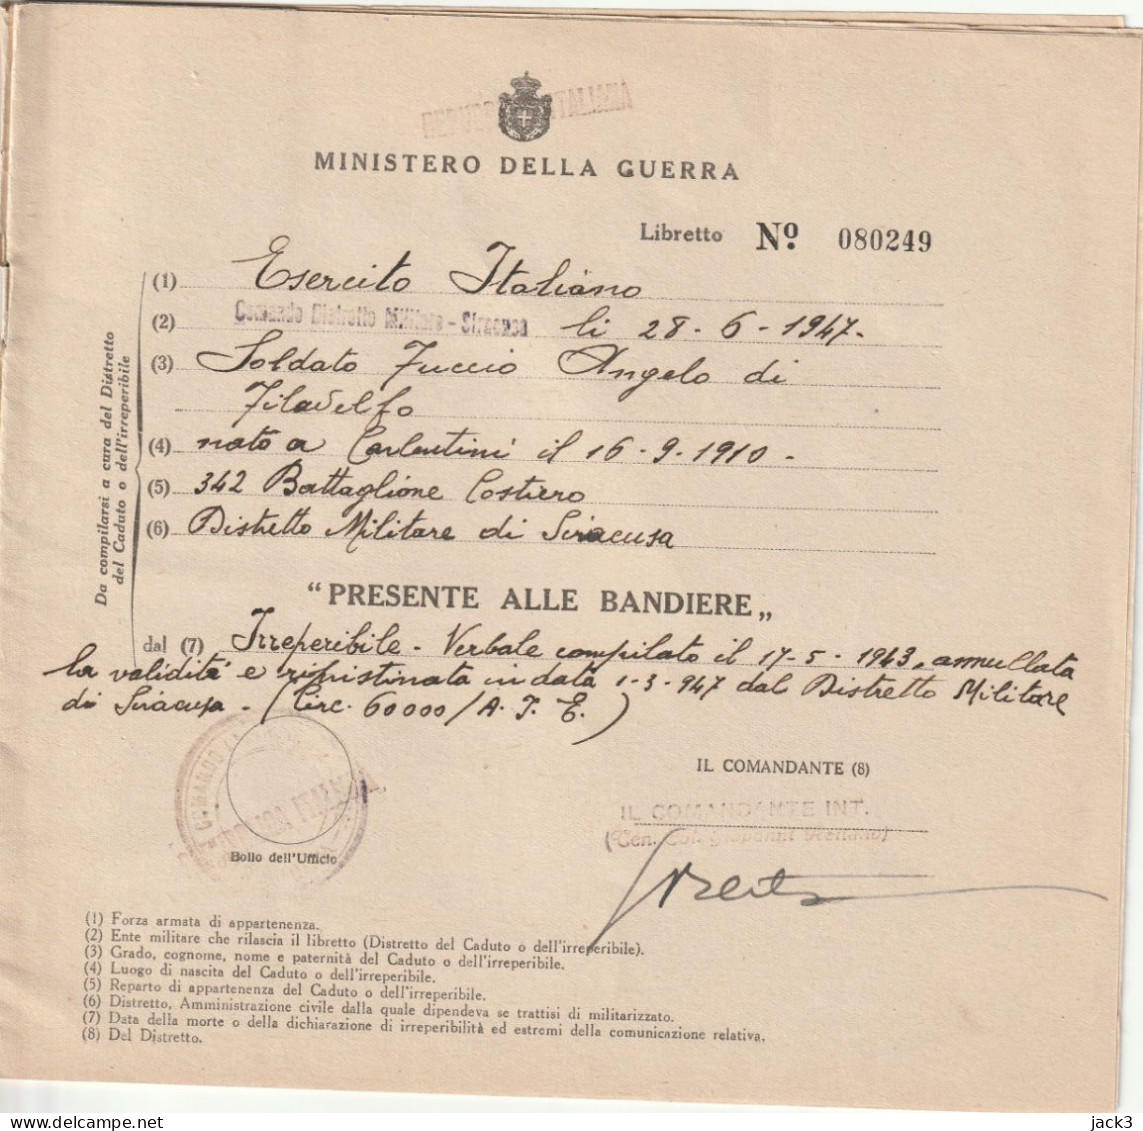 REPUBBLICA ITALIANA
MINISTERO DELLA GUERRA
Libretto Nº 080249
Da compilarsi a cura del Distretto
del Caduto o dell'irreperibile
(1) Esercito Italiano
(2) Comando Distretto Militare - Siracusa li 28-6-1947-
(3) Soldato Fuccio Angelo di
Filadelfo
(4) nato a Carlentini il 16-9-1910-
(5) 342 Battaglione Costiero
(6) Distretto Militare di Siracusa
“PRESENTE ALLE BANDIERE„
dal (7) Irreperibile - Verbale compilato il 17-5-1943, annullata
la validità e ripristinata in data 1-3-947 dal Distretto Militare
di Siracusa - (Circ. 60000/A.I.E.)
COMANDO
Bollo dell'Ufficio
IL COMANDANTE (8)
IL COMANDANTE INT.
(Ten. Col. Giovanni
(1) Forza armata di appartenenza.
(2) Ente militare che rilascia il libretto (Distretto del Caduto o dell'irreperibile).
(3) Grado, cognome, nome e paternità del Caduto o dell'irreperibile.
(4) Luogo di nascita del Caduto o dell'irreperibile.
(5) Reparto di appartenenza del Caduto o dell'irreperibile.
(6) Distretto, Amministrazione civile dalla quale dipendeva se trattisi di militarizzato.
(7) Data della morte o della dichiarazione di irreperibilità ed estremi della comunicazione relativa.
(8) Del Distretto.
www.delcampe.net
jack3